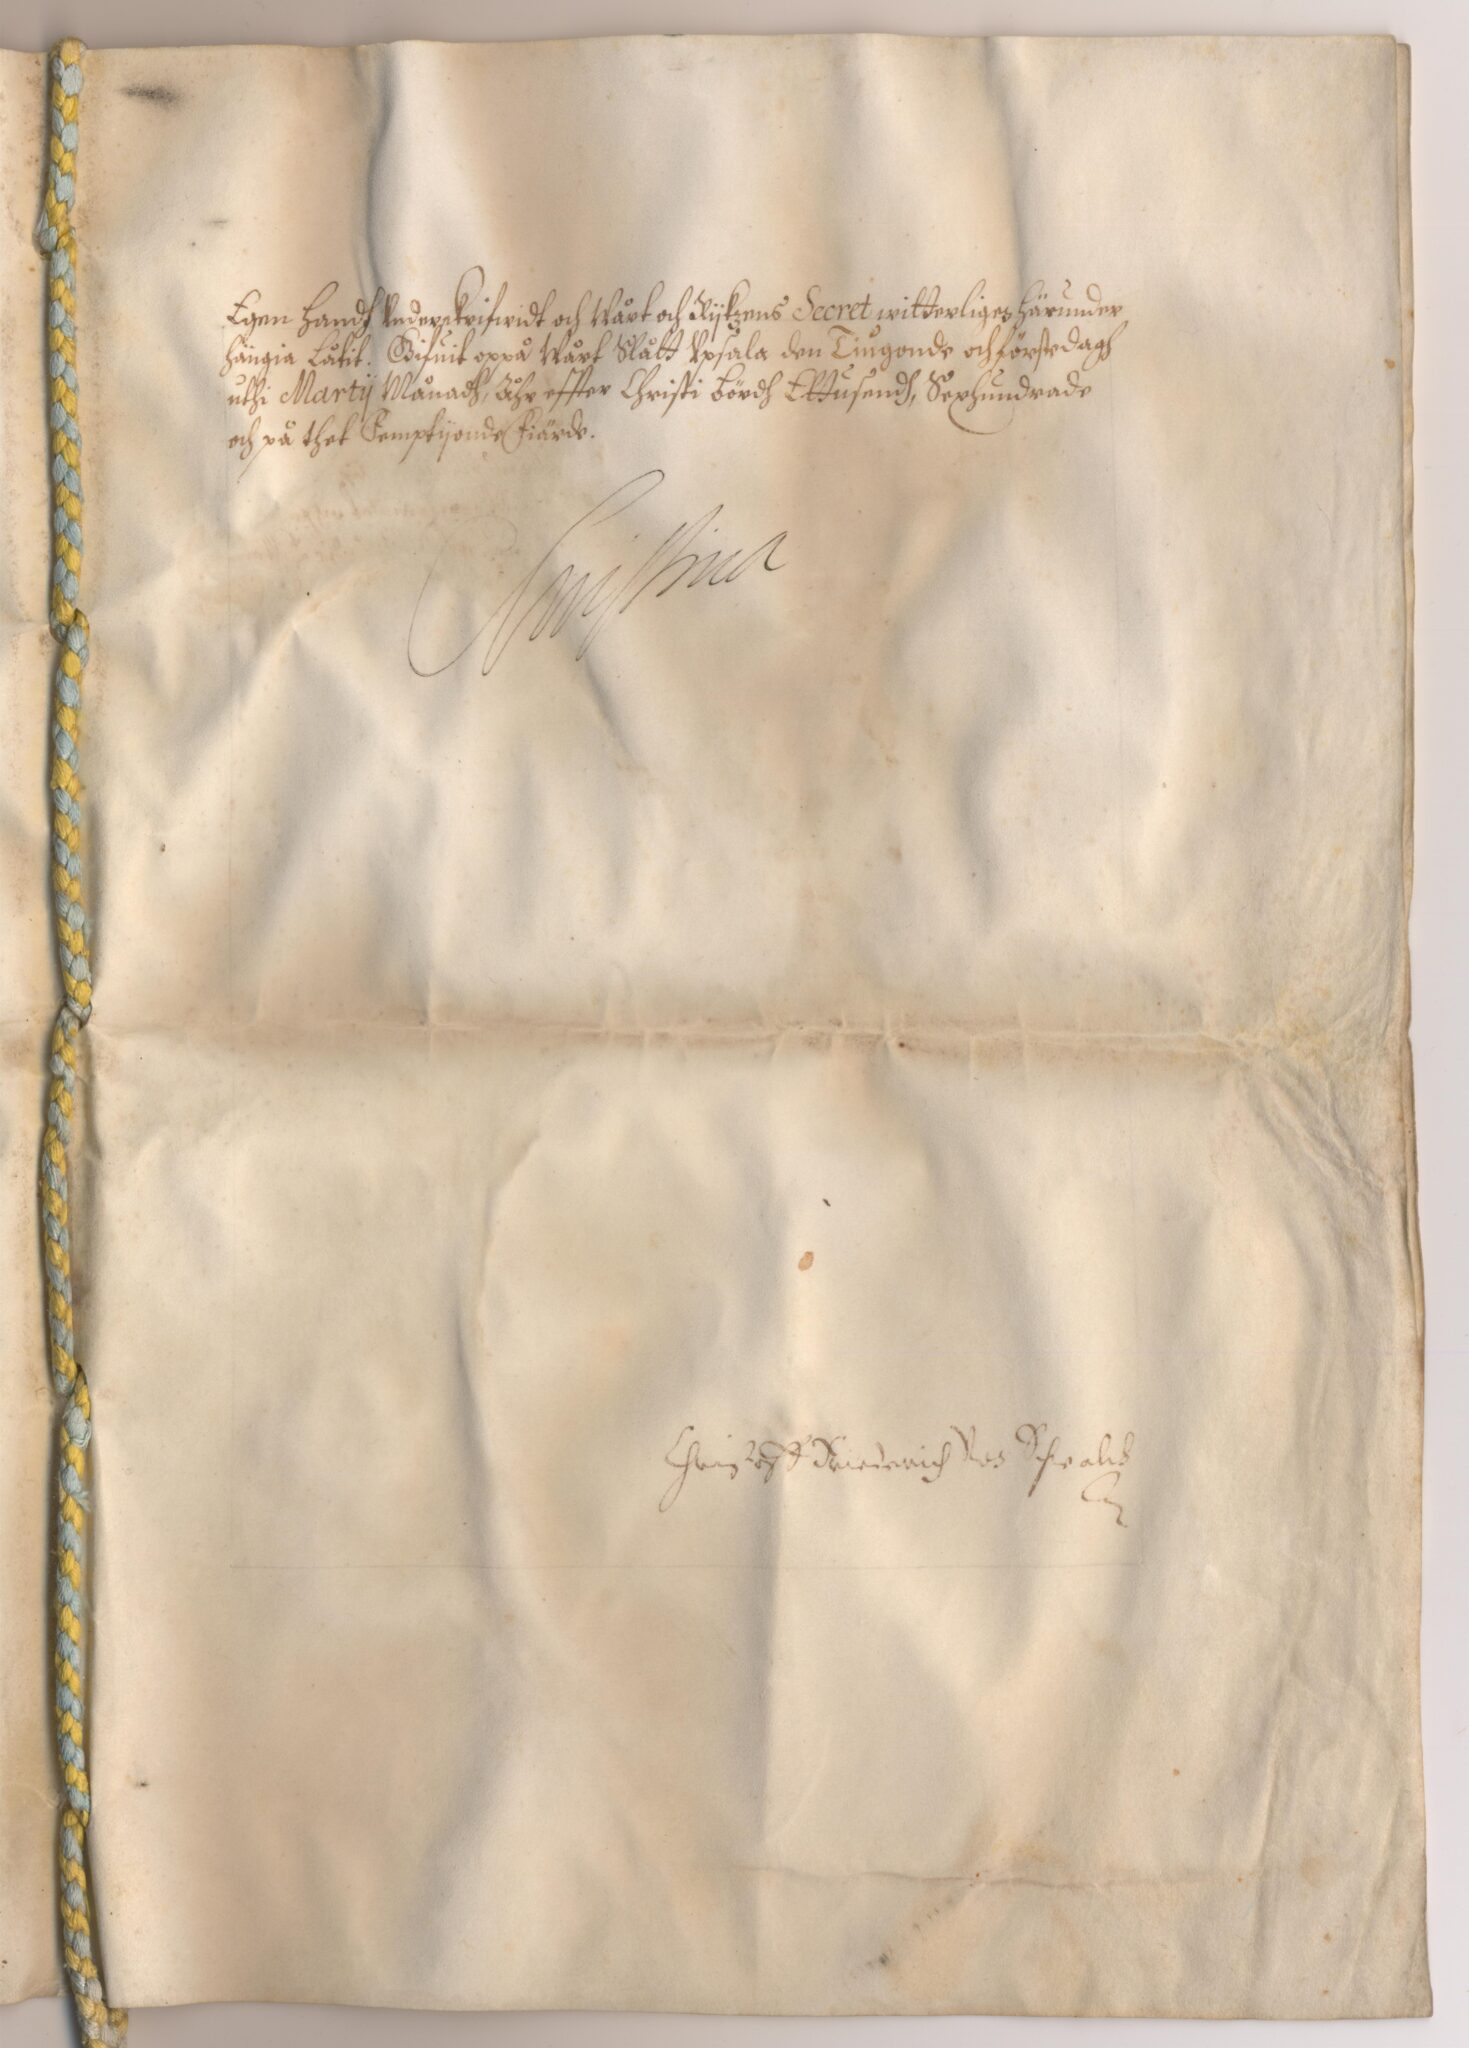 Egen handh Underskrifwidt och Wårt och Rijkzens Secret witterligen härunder
hängia Låtit. Gifuit oppå Wårt Slått Upsala den Tiugonde och förstedagh
uthi Martij Månadh, Åhr effter Christi bördh Ettusendh, Sexhundrade
och på thet Femptijonde Fiärde.
Christina